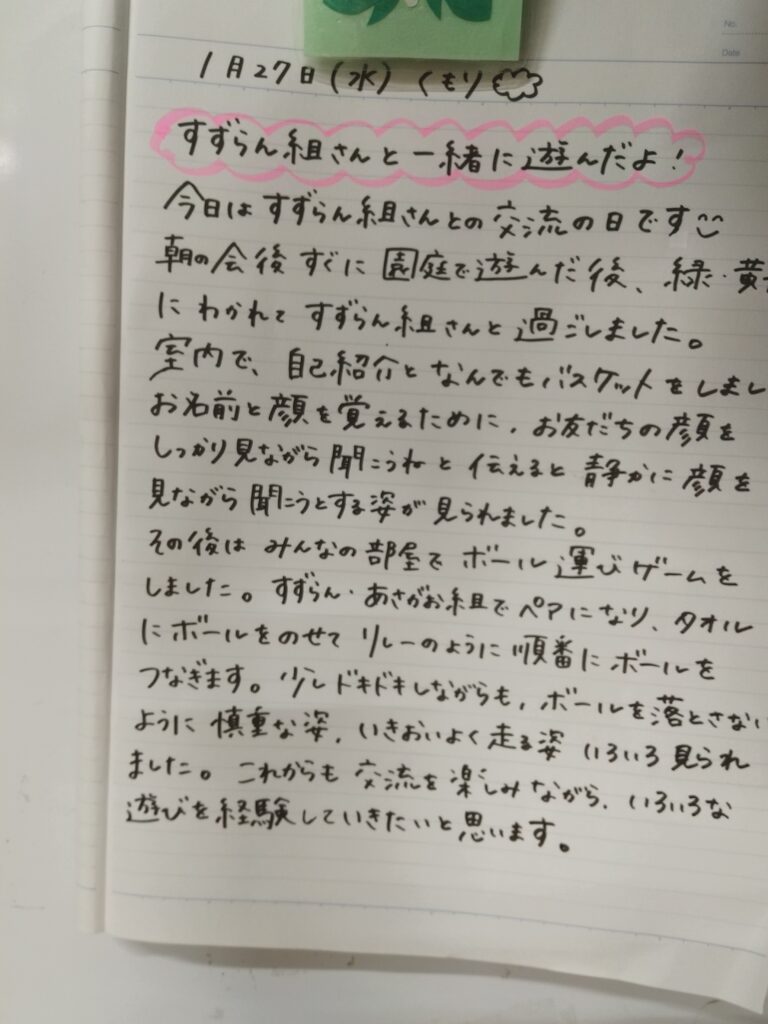 No.
Date
1月27日(水) くもり
すずらん組さんと一緒に遊んだよ!
今日はすずらん組さんとの交流の日です
朝の会後すぐに園庭で遊んだ後、緑・黄
にわかれてすずらん組さんと過ごしました。
室内で、自己紹介となんでもバスケットをしまし
お名前と顔を覚えるために、お友だちの顔を
しっかり見ながら聞こうねと伝えると静かに顔を
見ながら聞こうとする姿が見られました。
その後はみんなの部屋でボール運びゲームを
しました。すずらん・あさがお組でペアになり、タオル
にボールをのせてリレーのように順番にボールを
つなぎます。少しドキドキしながらも、ボールを落とさない
ように慎重な姿、いきおいよく走る姿いろいろ見られ
ました。これからも交流を楽しみながら、いろいろな
遊びを経験していきたいと思います。